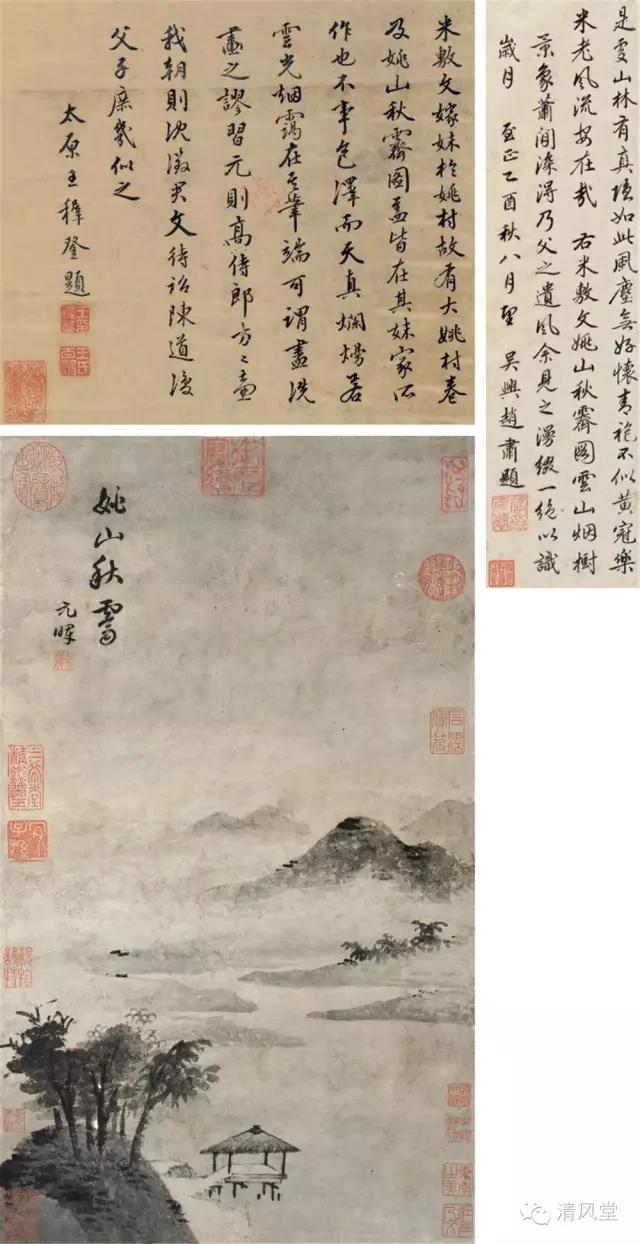 是處山林有真隱如此風塵無好懷青袍不似黃冠樂
米老風流安在哉 右米敷文姚山秋霽圖雲山烟樹
景象蕭閒深得乃父之遺風余見之漫綴一絕以識
歲月 至正乙酉秋八月望 吳興趙肅題
米敷文嫁妹於姚村故有大姚村卷
及姚山秋霽圖蓋皆在其妹家所
作也不事色澤而天真爛熳若
雲光烟靄在其筆端可謂盡洗
畫之謬習元則高侍郎方々壺
我朝則沈徵君文待詔陳道復
父子庶幾似之
太原王穉登題
姚山秋霽
元暉
乾隆鑑賞
石渠寶笈
三希堂精鑑璽
宜子孫
清风堂